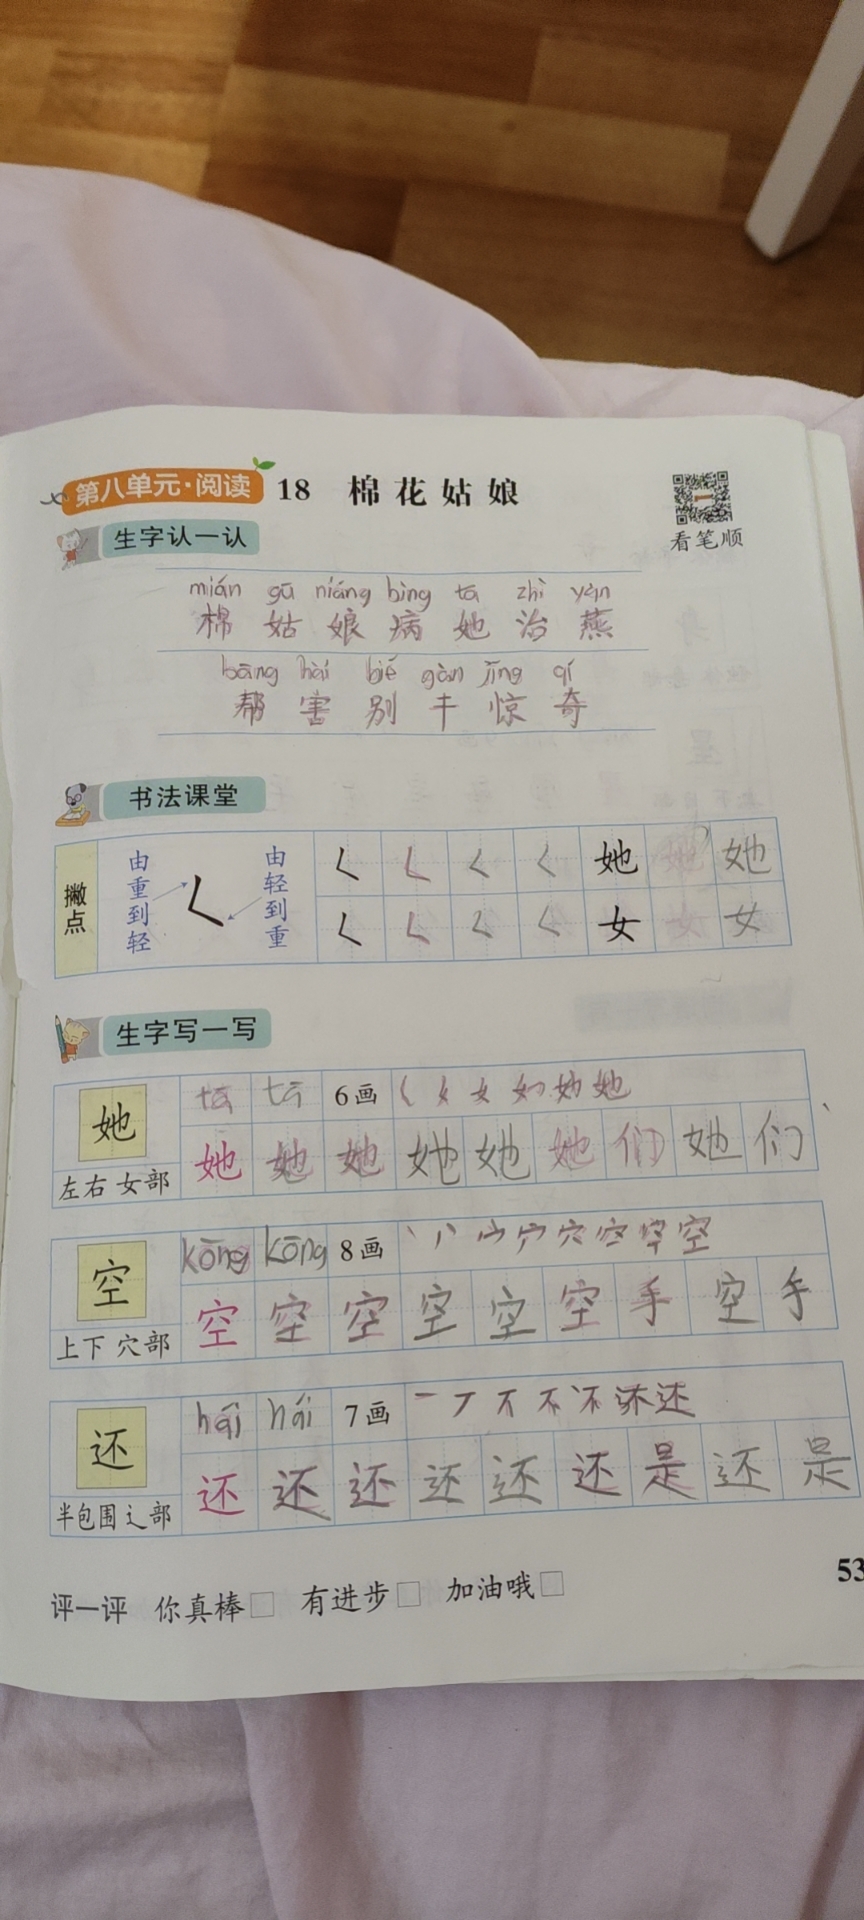 第八单元·阅读 18 棉花姑娘
看笔顺
生字认一认
mián gū niáng bìng tā zhì yàn
棉 姑 娘 病 她 治 燕
bāng hài bié gàn jīng qí
帮 害 别 干 惊 奇
书法课堂
撇点 由重到轻 由轻到重 ㄑ ㄑ ㄑ ㄑ 她 她 她
ㄑ ㄑ ㄑ ㄑ 女 女 女
生字写一写
她 tā tā 6画
左右 女部 她 她 她 她 她 她 们 她 们
空 kōng kōng 8画
上下 穴部 空 空 空 空 空 空 手 空 手
还 hái hái 7画
半包围 辶部 还 还 还 还 还 还 是 还 是
53
评一评 你真棒□ 有进步□ 加油哦□